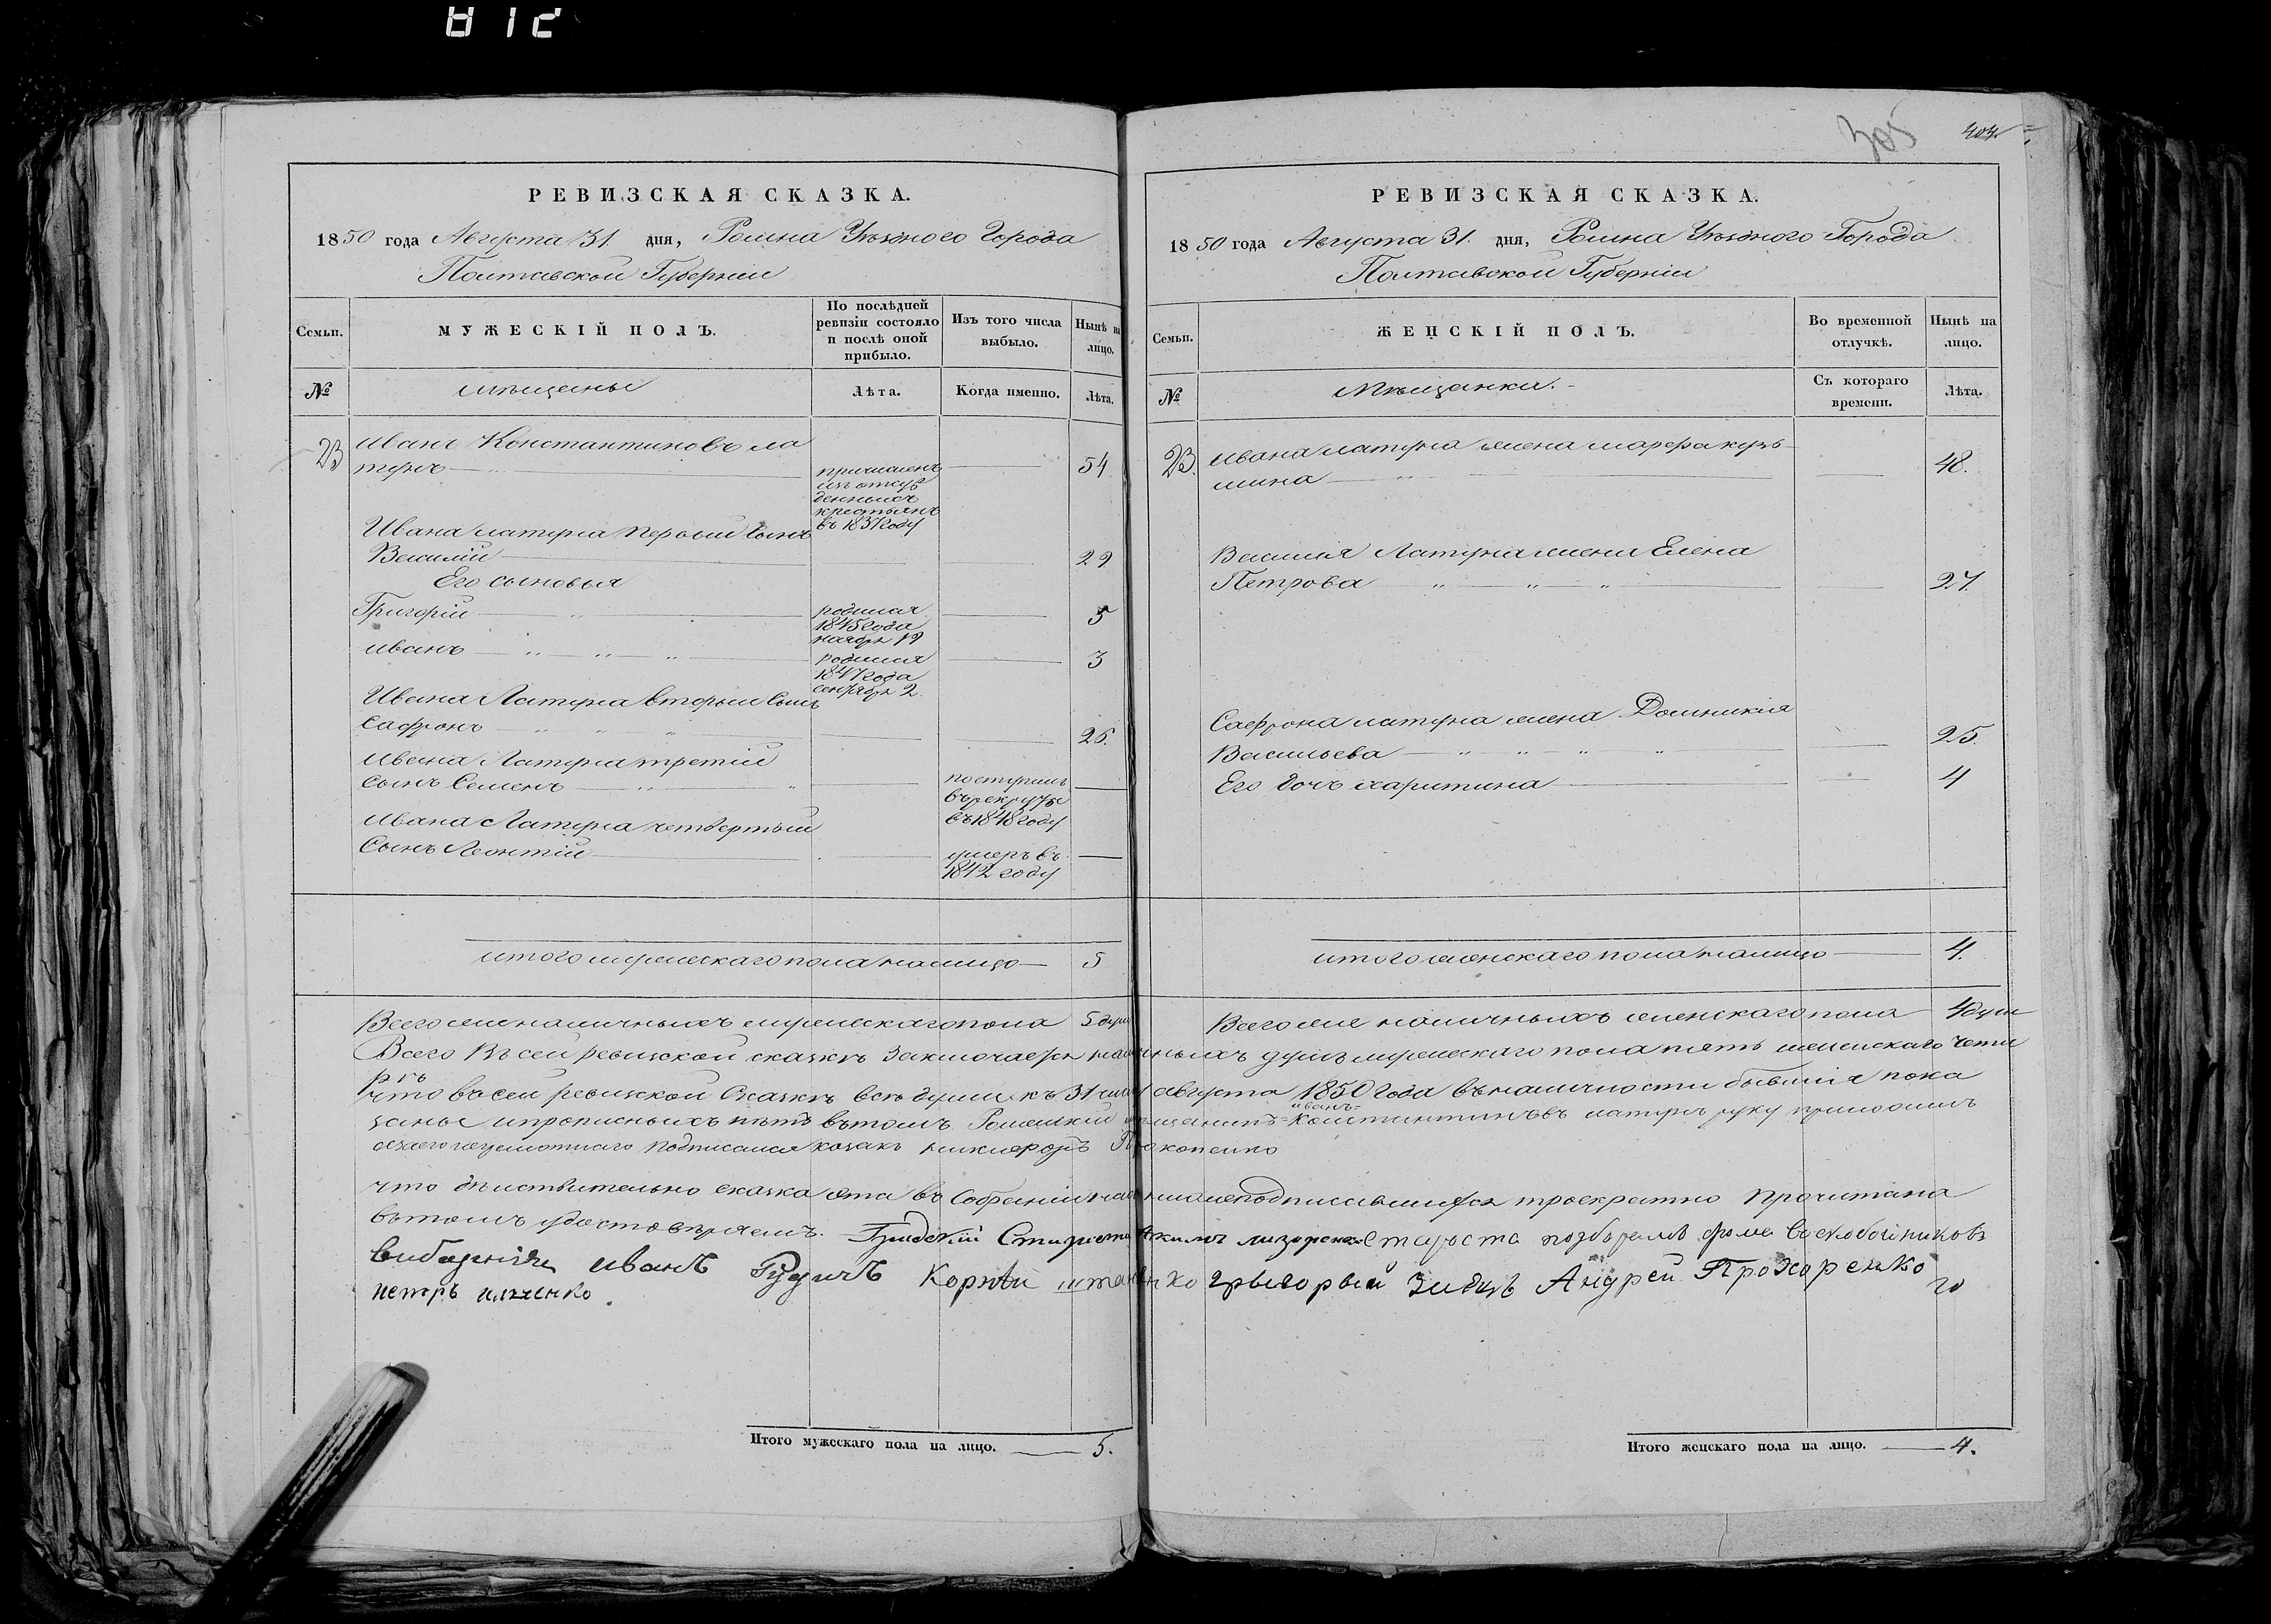 812
РЕВИЗСКАЯ СКАЗКА.
1850 года Августа 31. дня, Ромна Уѣзднаго Города
Полтавской Губерніи
Семьи.
МУЖЕСКІЙ ПОЛЪ.
По послѣдней ревизіи состояло и послѣ оной прибыло.
Изъ того числа выбыло.
Нынѣ на лицо.
№
мѣщаны
Лѣта.
Когда именно.
Лѣта.
23
Иванъ Константиновъ ла
тунъ
54
причисленъ
изъ отсуж
денныхъ
крестьянъ
въ 1837 году
Ивана латуна первый сынъ
Василій
29
Его сыновья
Григорій
5
родился
1845 года
ноября 19
иванъ
3
родился
1847 года
сентября 2.
Ивана Латуна вторый сынъ
Сафронъ
26.
Ивана Латуна третій
сынъ Семенъ
поступилъ
въ рекруты
въ 1848 году
Ивана Латуна четвертый
Сынъ Леонтій
умеръ въ
1842 году
итого мужескаго пола налицо 5
Всего же наличныхъ мужескаго пола 5 душ
305
РЕВИЗСКАЯ СКАЗКА.
1850 года Августа 31. дня, Ромна Уѣзднаго Города
Полтавской Губерніи
Семьи.
ЖЕНСКІЙ ПОЛЪ.
Во временной отлучкѣ.
Нынѣ на лицо.
№
Мѣщанки.
Съ котораго времени.
Лѣта.
23.
Ивана латуна жена марфа кузь
мина
48.
Василія Латуна жена Елена
Петрова
27.
Сафрона латуна жена Домникія
Васильева
25.
Его дочь харитина
4
итого женскаго пола налицо 4.
Всего же наличныхъ женскаго пола 4 душ
Всего въ сей ревизской сказкѣ заключается наличныхъ душъ мужескаго пола пять женскаго четы
рѣ
что въ сей ревизской Сказкѣ всѣ души къ 31 числу августа 1850 года въ наличности бывшія пока
заны и прописныхъ нѣтъ въ томъ Роменскій мещанинъ иванъ Константиновъ латунъ руку приложилъ
а за него неграмотнаго подписался козакъ никифоръ Прокопенко
что дѣйствительно сказка эта въ Собраніи нашемъ подписавшихся троекратно прочитана
въ томъ удостовѣряемъ. Градскій Староста Акимъ староста фома Воскобойниковъ
иванъ Корнѣй Андрей Прохоренко
петръ
Итого мужескаго пола на лицо. 5.
Итого женскаго пола на лицо. 4.